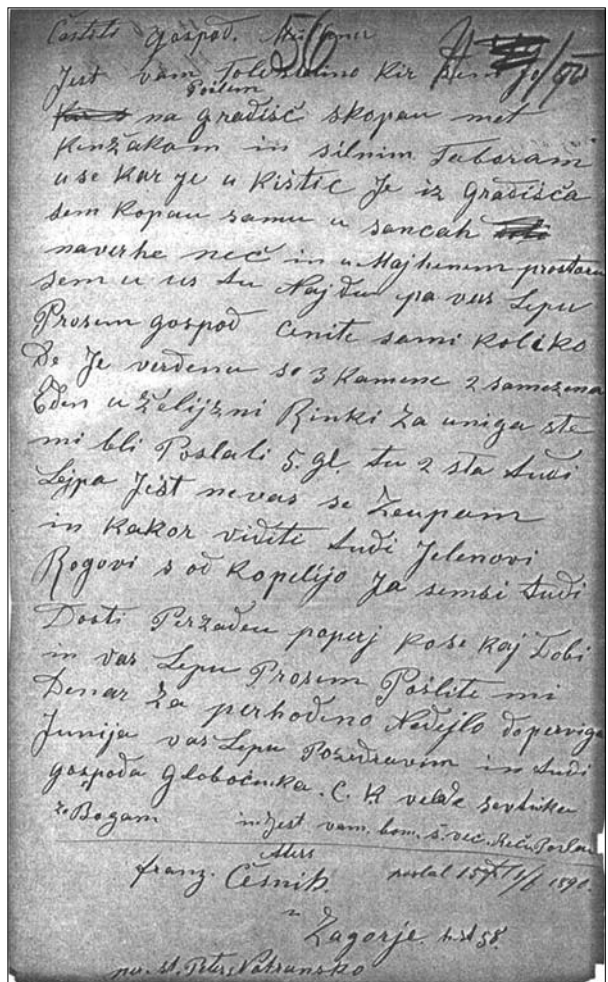 Častiti gospod. Müllner 56
Jest vam Toležolino kir sem jo
Poslem
na gradišč skopau met
Kenžakam in silnim Taboram
use kar je u kištic je iz gradišča
sem kopau samu u sancah
naverhe neč in u Majhenem prostoru
sem u us tu Najdu pa vas Lepu
Prosem gospod cenite sami koliko
De Je verdenu so 3 kamene 2 samezena
Eden u Želijzni Rinki za uniga ste
mi bli Poslali 5. gl. tu 2 sta tudi
Lejpa Jest nevas se zeupam
in kakor vidite tudi Jelenovi
Rogovi s od kopelijo Ja semsi tudi
Dosti Perzadeu paperj kose kaj Dobi
in vas Lepu Prosem Pošlite mi
Denar za perhodeno Nedejlo doperviga
Junija vas Lepu Pozdravim in tudi
gospoda Globočnika. C. K velde svetnika
z Bogam in Jest vam. bom. š. več. Reči Poslau
franz. Česnik poslal 15 1890.
Zagorje. h. št 58.
St. Peter